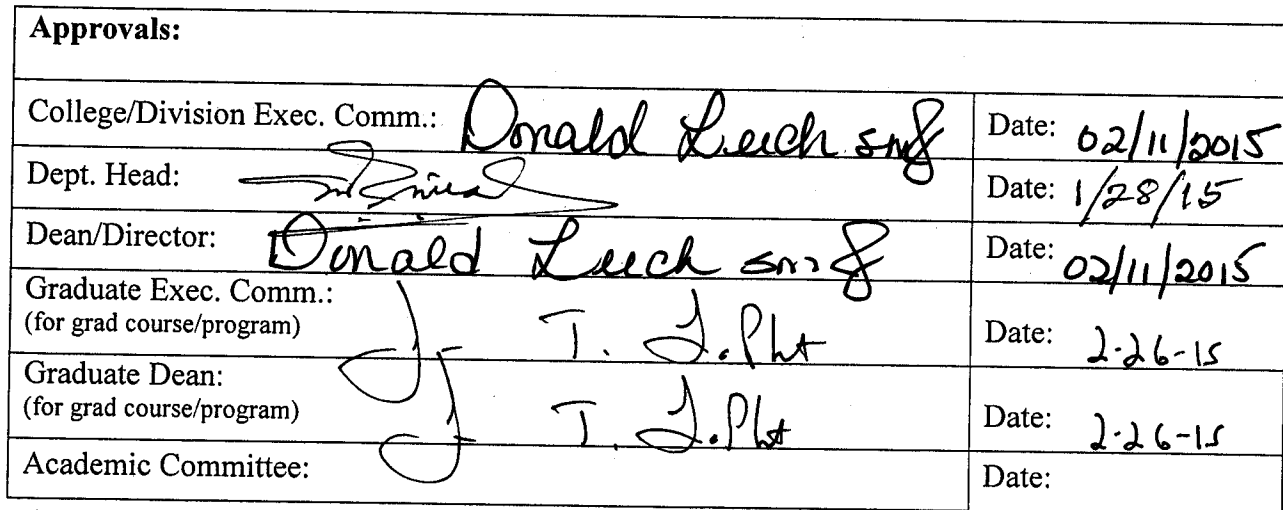 Approvals:
College/Division Exec. Comm.: Donald Leech smf Date: 02/11/2015
Dept. Head: Date: 1/28/15
Dean/Director: Donald Leech smf Date: 02/11/2015
Graduate Exec. Comm.:
(for grad course/program) Date: 2-26-15
Graduate Dean:
(for grad course/program) Date: 2-26-15
Academic Committee: Date: